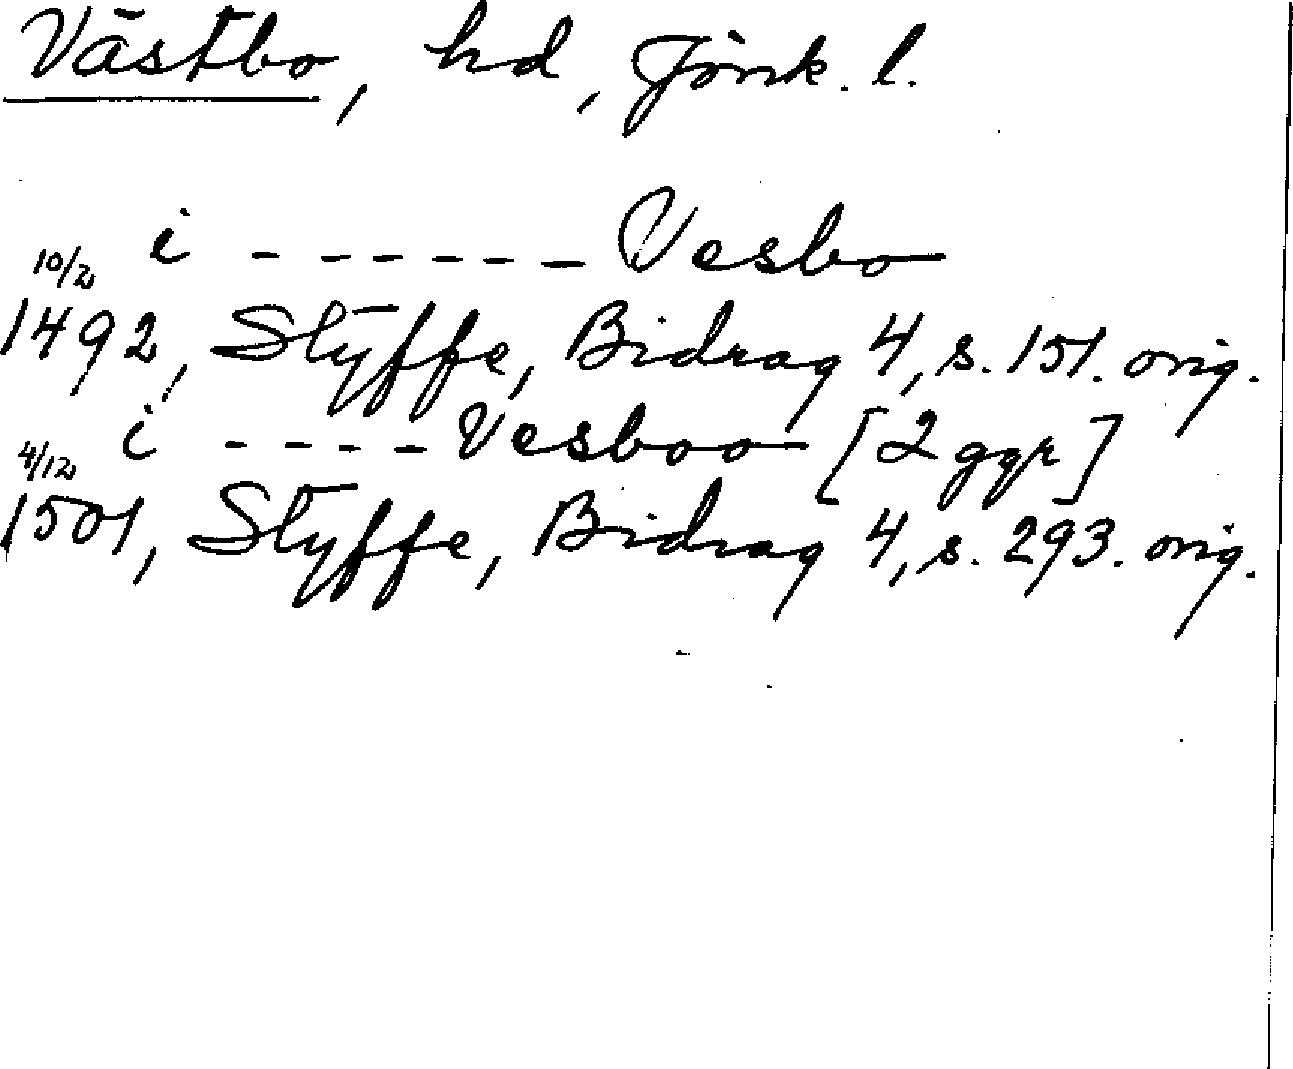 Västbo, hd, Jönk. l.
i - - - - - - Vesbo
10/2
1492, Styffe, Bidrag 4, s. 151. orig.
i - - - - Vesboo [2 ggr]
4/12
1501, Styffe, Bidrag 4, s. 293. orig.